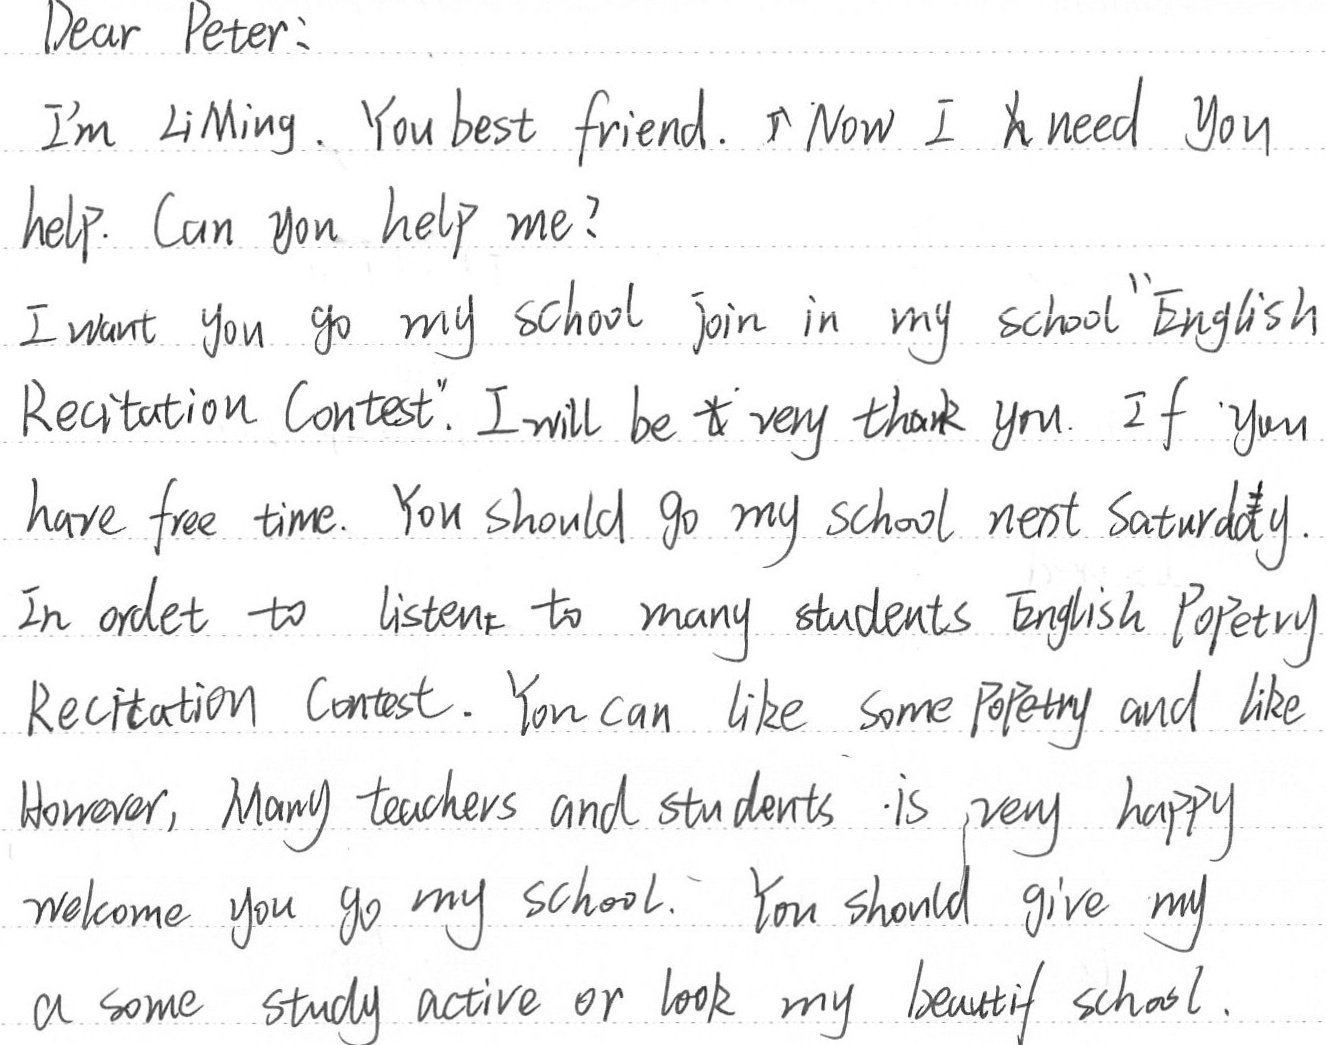 Dear Peter:
I'm LiMing. You best friend. Now I need you
help. Can you help me?
I want you go my school join in my school "English
Recitation Contest". I will be very thank you. If you
have free time. You should go my school next Saturday.
In ordet to listent to many students English Popetry
Recitation Contest. You can like some Popetry and like
However, Many teachers and students is very happy
welcome you go my school. You should give my
a some study active or look my beautif school.